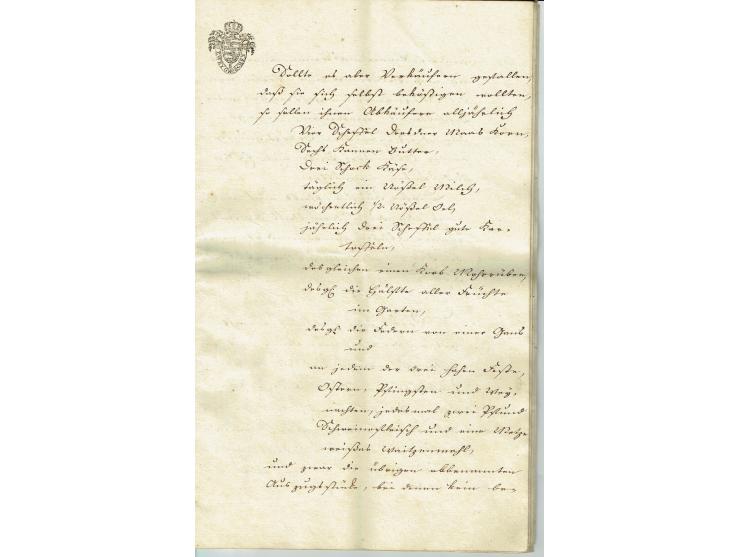 ZWEY GROSCHEN
Sollte es aber Verkäufern gefallen,
daß sie sich selbst beköstigen wollten,
so sollen ihnen Abkäufere alljährlich
Vier Scheffel Dresdner Maas Korn,
Sechs Kannen Butter,
Drei Schock Käse,
täglich ein Nößel Milch,
wöchentlich 1/2 Nößel Oel,
jährlich drei Scheffel gute Kar-
toffeln,
desgleichen einen Korb Mohrrüben,
desgl. die Hälfte aller Früchte
im Garten,
desgl. die Federn von einer Gans
und
an jedem der drei hohen Feste,
Ostern, Pfingsten und Wey-
nachten, jedesmal zwei Pfund
Schweinefleisch und eine Metze
weißes Waitzenmehl,
und zwar die übrigen obbenannten
Auszugsstücke, bei denen kein be-